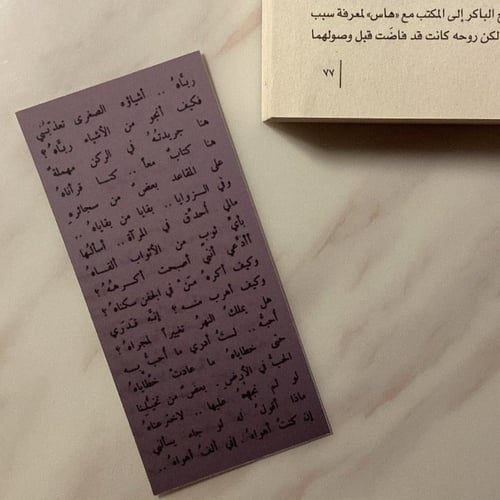 الباكر إلى المكتب مع «هاس» لمعرفة سبب
لكن روحه كانت قد فاضَت قبل وصولهما
٧٧
ربّاهُ .. أشياؤه الصغرى تعذّبُني
فكيف أنجو من الأشياء ربّاهُ ؟
هنا جريدتهُ في الركن مهملةٌ
هنا كتابٌ معاً .. كنا قرأناهُ
على المقاعد بعضٌ من سجائرهِ
وفي الزوايا .. بقايا من بقاياهُ ..
مالي أحدّق في المرآة .. أسألها
بأيّ ثوبٍ من الأثواب ألقاهُ
أأدّعي أنني أصبحت أكرههُ ؟
وكيف أكرهُ مَنْ في الجفن سكناهُ ؟
وكيف أهرب منه ؟ إنّه قدَري
هل يملك النهر تغييراً لمجراهُ ؟
أحبّه .. لستُ أدري ما أحبّ به
حتى خطاياهُ ما عادت خطاياهُ
الحبّ في الأرضِ . بعضٌ من تخيّلنا
لو لم نجدهُ عليها .. لاخترعناهُ
ماذا أقول له لو جاء يسألني
إن كنتُ أهواهُ . إني ألف أهواهُ ..